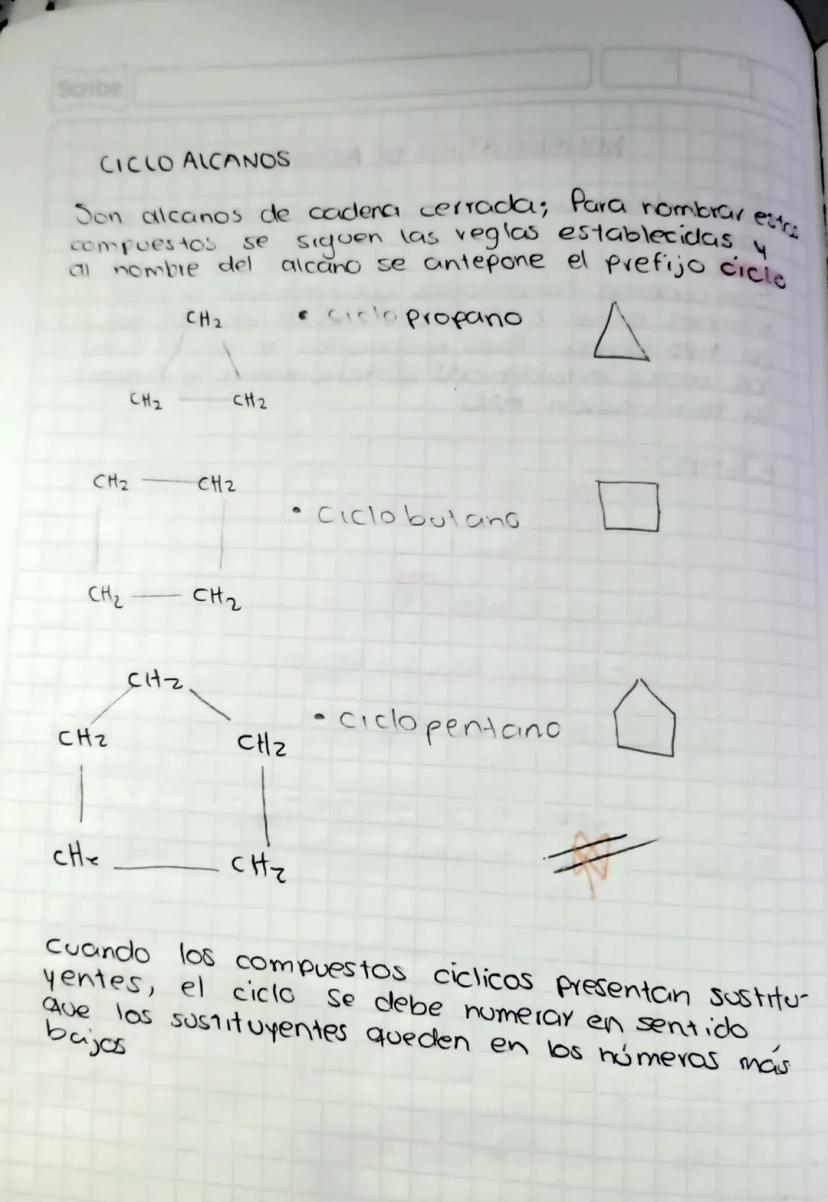 Scribe
CICLO ALCANOS
Son alcanos de cadena cerrada; Para nombrar estos
compuestos se siguen las reglas establecidas y
al nombre del alcano se antepone el prefijo ciclo
CH2 • ciclo propano
CH2 CH2
CH2 CH2
• Ciclo butano
CH2 CH2
CH2
• Ciclo pentano
CH2 CH2
CH2 CH2
Cuando los compuestos ciclicos presentan sustitu-
yentes, el ciclo se debe numerar en sentido
que los sustituyentes queden en los números más
bajos